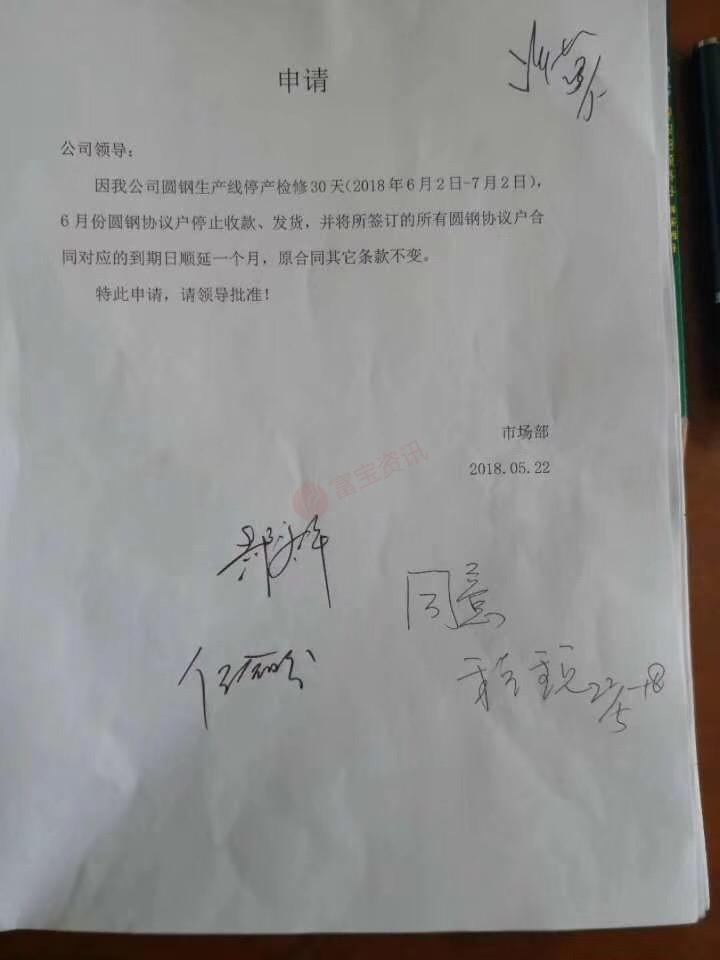 申请
公司领导：
因我公司圆钢生产线停产检修30天（2018年6月2日-7月2日），
6月份圆钢协议户停止收款、发货，并将所签订的所有圆钢协议户合
同对应的到期日顺延一个月，原合同其它条款不变。
特此申请，请领导批准！
市场部
2018.05.22
富宝资讯
同意